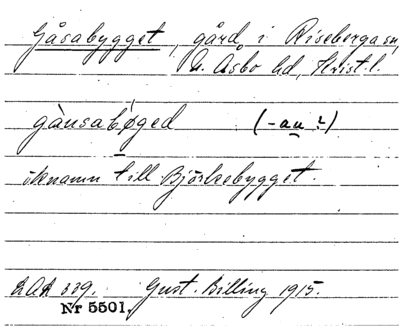 Gåsabygget, gård i Riseberga sn,
N. Åsbo hd, Krist. l.
gàusabøged (-au?)
öknamn till Björkebygget.
LAA 339. Gust. Billing 1915.
Nr 5501.